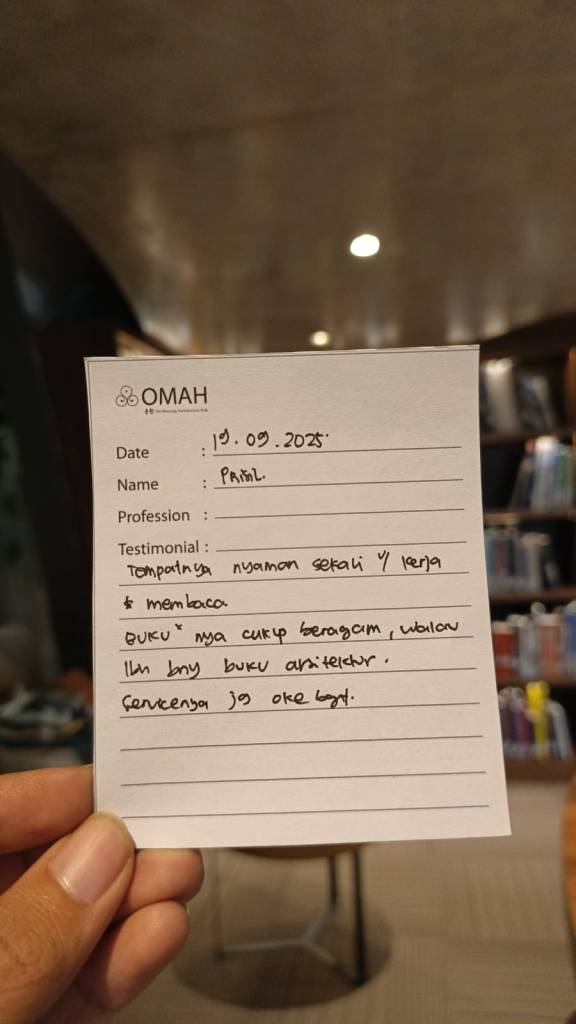 OMAH
Date : 19.09.2025
Name :
Profession :
Testimonial :
Tempatnya nyaman sekali u/ kerja
& membaca
BUKU" nya cukup beragam, walau
lbh bny buku arsitektur.
Servicenya jg oke bgt.